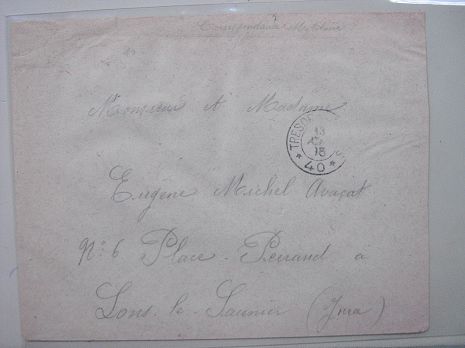 Correspondance Militaire
Monsieur et Madame
TRESOR
13
18
* 40 *
Eugène Michel Avocat
N° 6 Place Perraud à
Lons-le-Saunier (Jura)